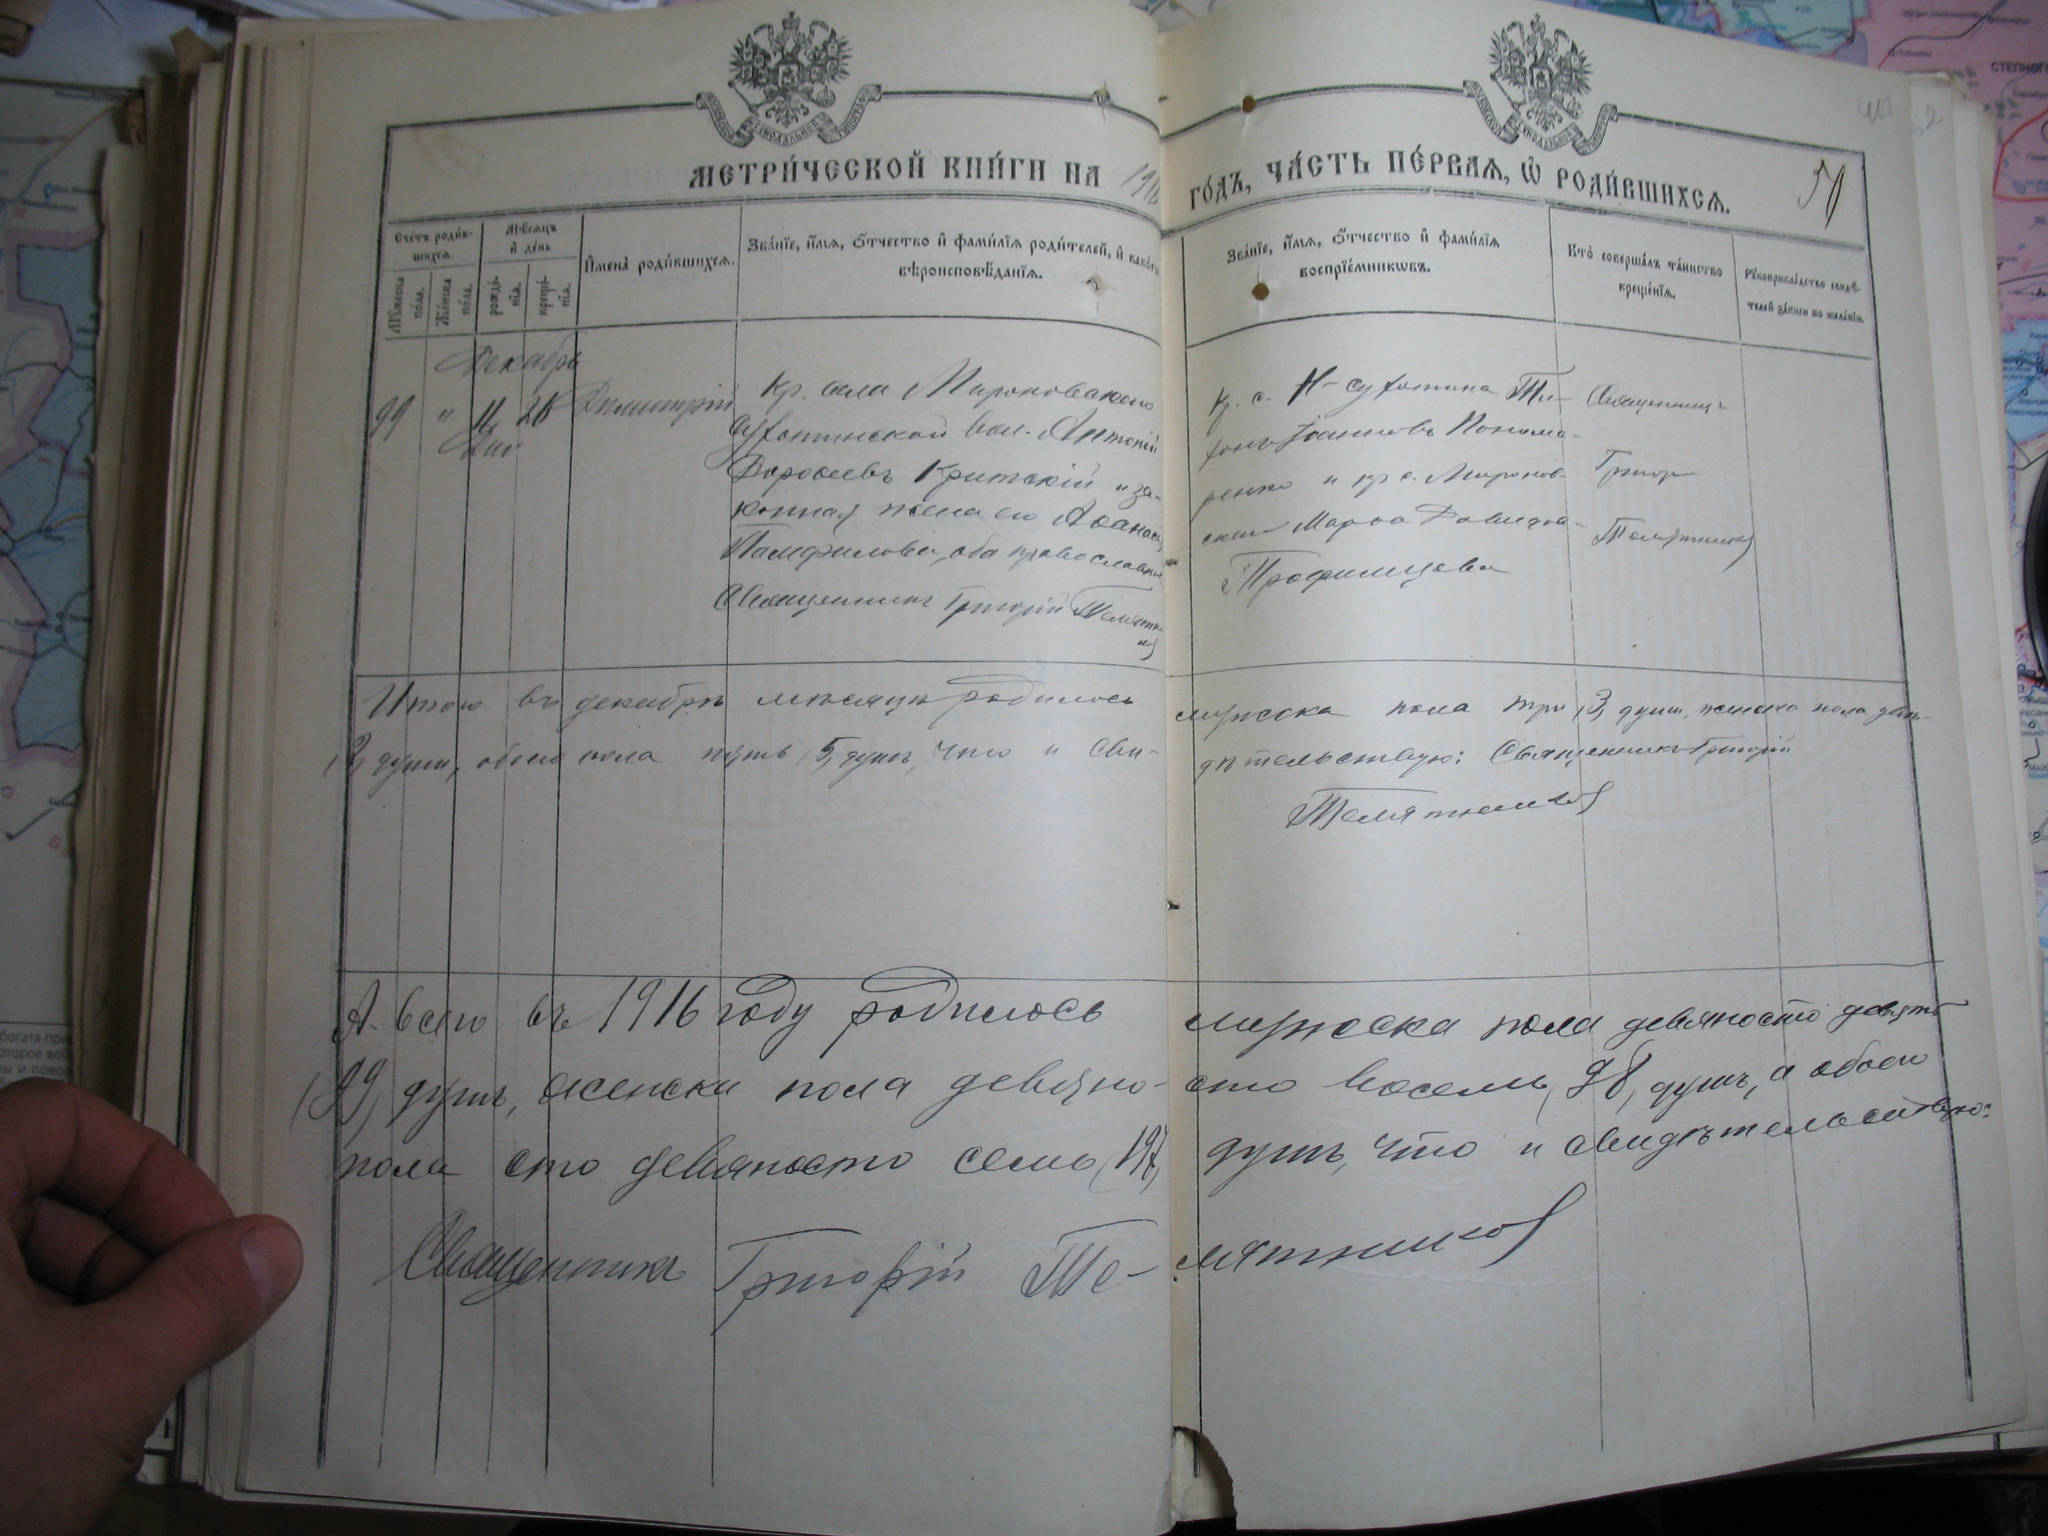 МЕТРИ́ЧЕСКОЙ КНИ́ГИ НА 1916 ГО́ДЪ, ЧА́СТЬ ПЕ́РВАЯ, Ѡ҆ РОДИ́ВШИХСЯ.
51
Сче́тъ роди́вшихся.
Мꙋ́жеска по́ла.
Же́нска по́ла.
Мѣ́сяцъ и҆ де́нь
рожде́нїя.
креще́нїя.
И҆мена̀ роди́вшихся.
Зва́нїе, и҆́мя, ѻ҆́тчество и҆ фами́лїя роди́телей, и҆ како́гѡ
вѣроисповѣ́данїя.
Зва́нїе, и҆́мя, ѻ҆́тчество и҆ фами́лїя
воспрїе́мникѡвъ.
Кто̀ соверша́лъ та́инство
креще́нїя.
Рꙋкоприкла́дство свидѣ́телей за́писи по жела́нїю.
Декабрь
99 " 11 26 Димитрій
Кр. села Мироновскаго
Сухотинской вол. Антоній
Дорофеевъ Критскій и за-
конная жена его Аѳанасія
Памфилова, оба православные
Священникъ Григорій Телятни-
ков
Кр. с. Н-Сухотина Ти-
хонъ Іоанновъ Понома-
ренко и кр. с. Миронов-
скаго Марѳа Давидова
Трофимцова
Священникъ
Григор
Телятников
Итого въ декабрѣ мѣсяцѣ родилось мужеска пола три (3) души, женска пола двѣ-
(2) души, обоего пола пять (5) душъ, что и сви-дѣтельствую: Священникъ Григорій
Телятников
А всего въ 1916 году родилось мужеска пола девяносто девять
(99) душъ, женска пола девяно-сто восемь (98) душъ, а обоего
пола сто девяносто семь (197) душъ, что и свидѣтельствую:
Священникъ Григорій Те-лятников